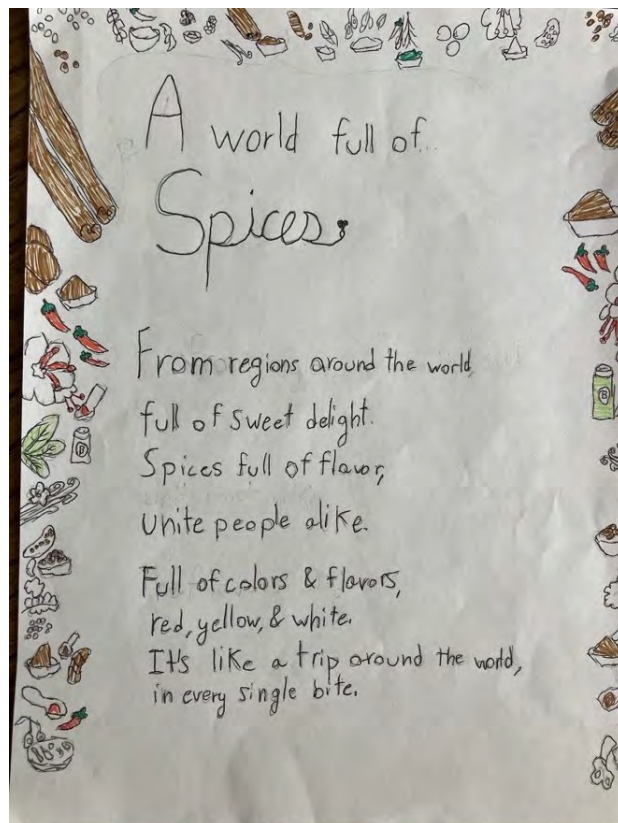 A world full of...
Spices.
From regions around the world,
full of sweet delight.
Spices full of flavor,
unite people alike.
Full of colors & flavors,
red, yellow, & white.
It's like a trip around the world,
in every single bite.